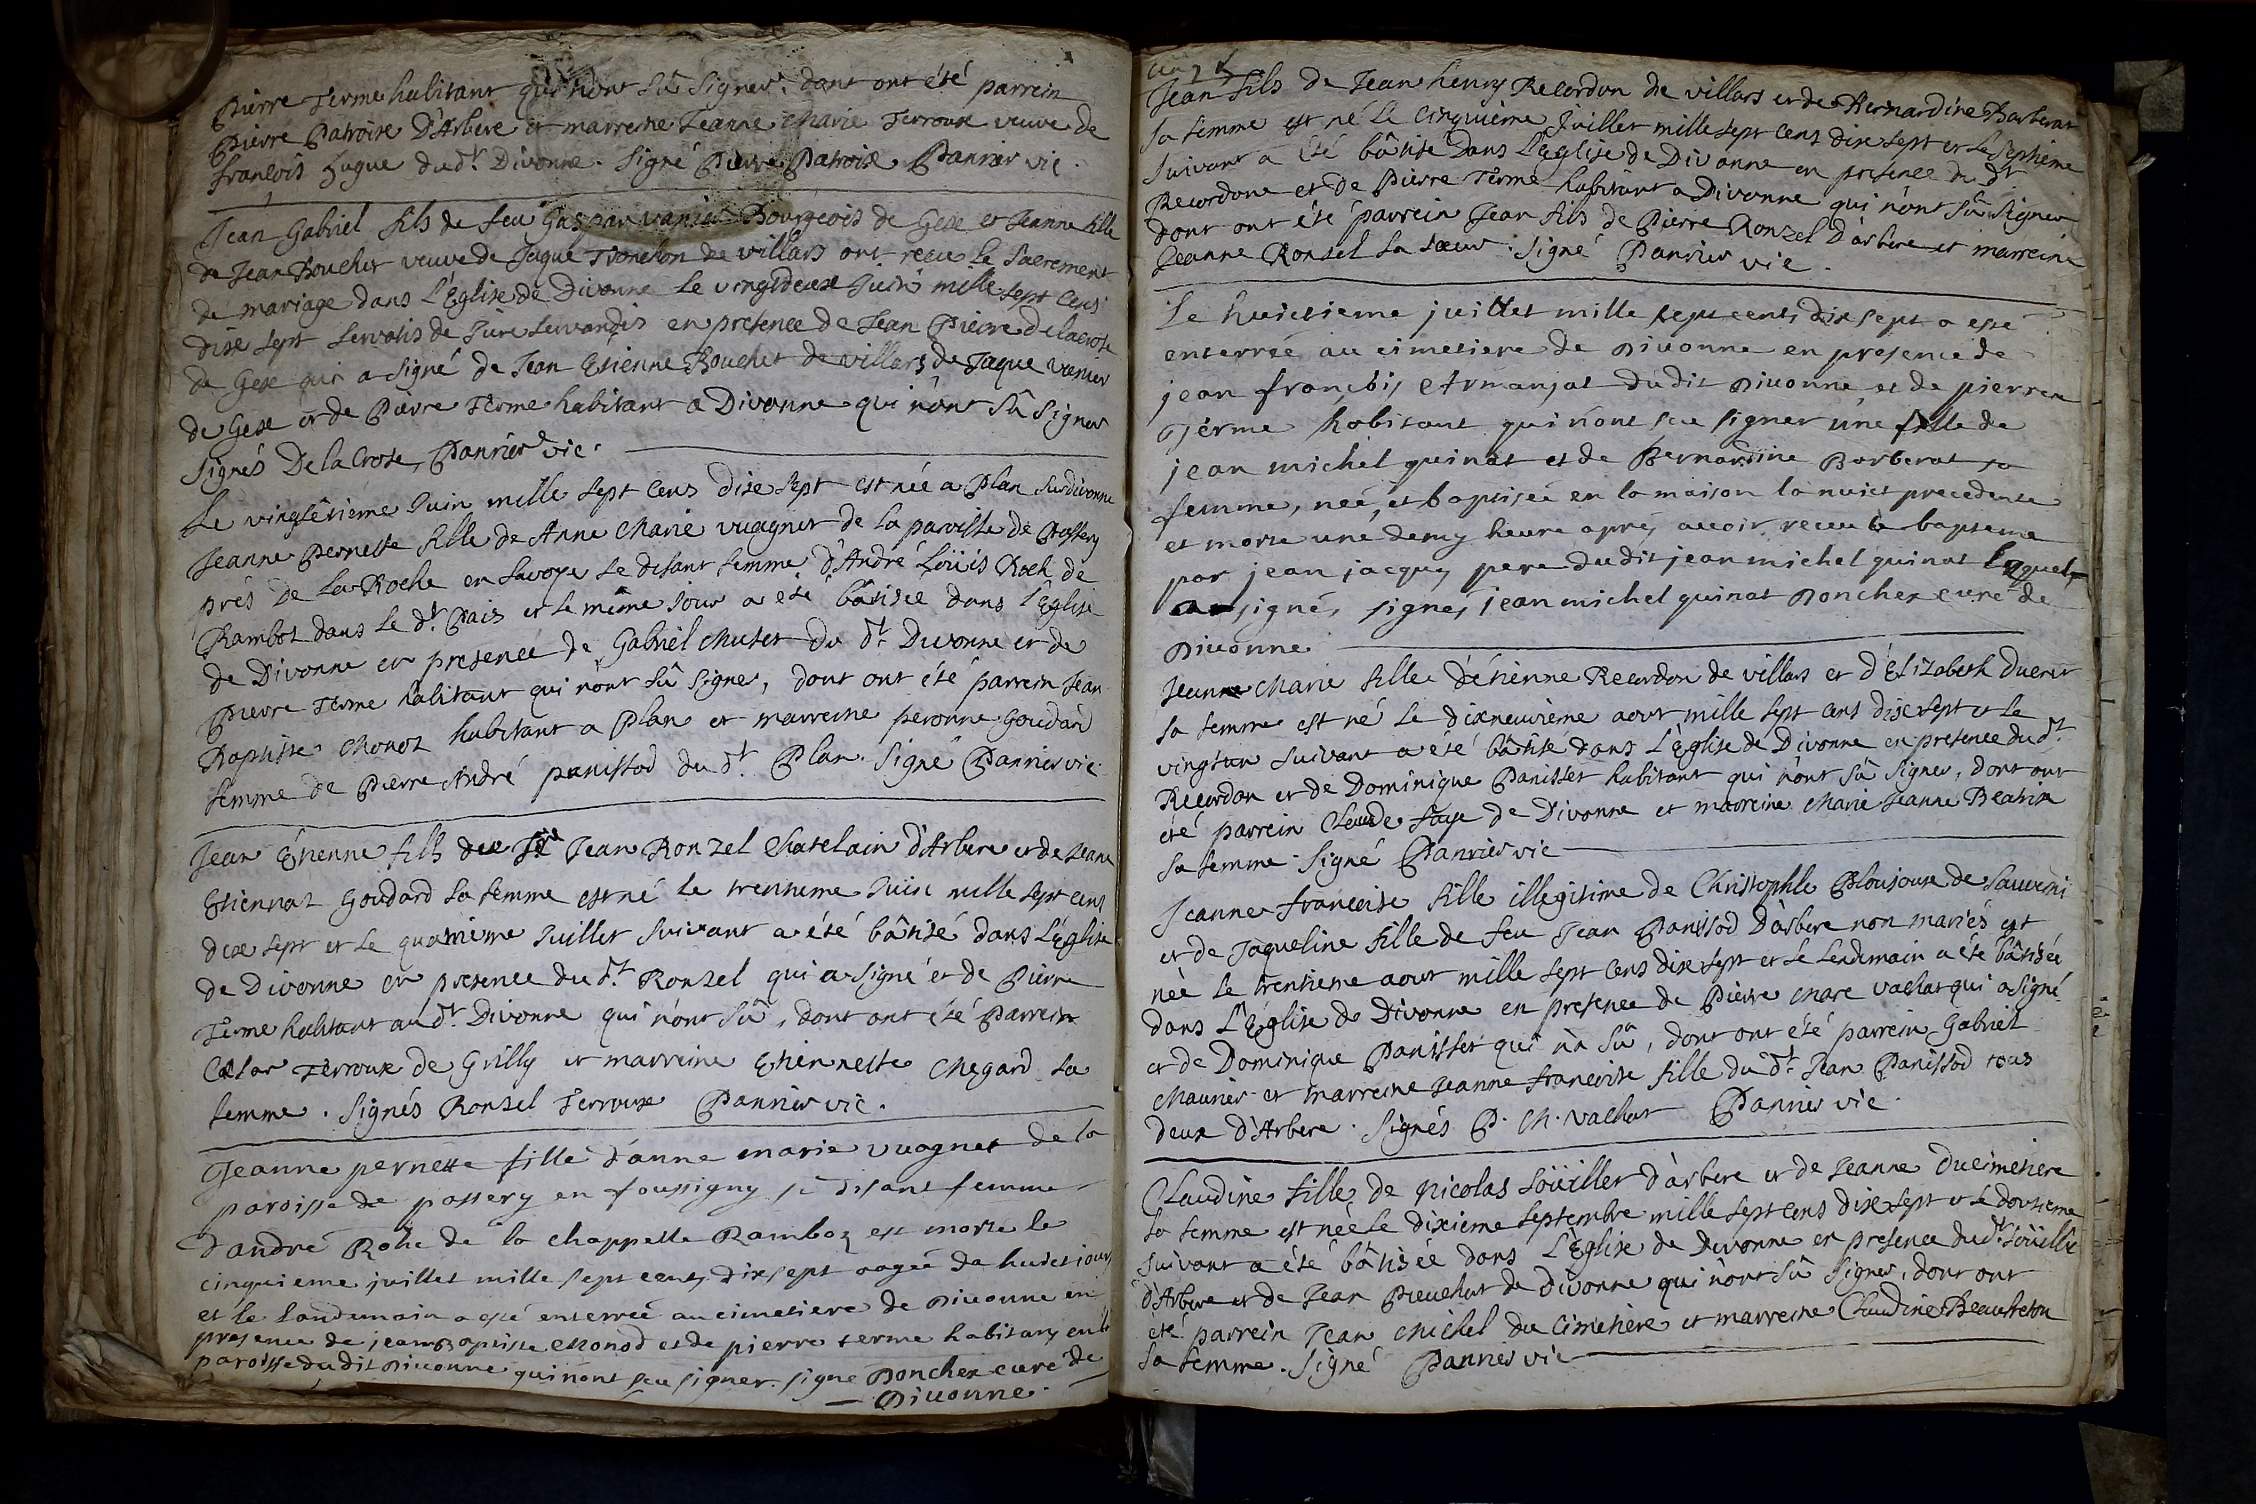 Pierre Terme habitant qui n'ont sû signer. dont ont été parrein
Pierre Patroix D'Arbere et marreine Jeanne Marie Terroux veuve de
françois hugue dud.t Divonne. Signé Pierre Patroix Pannier vic.
Jean Gabriel fils de feu Gaspar vanier Bourgeois de Gex et Jeanne fille
de Jean Bouchet veuve de Jaque Tronchon de villars ont recu le Sacrement
de mariage dans L'Église de Divonne le vingtdeux Juin mille sept cens
dixe sept servatis de Jure servandis en presence de Jean Pierre delacroſe
de Gex qui a signé de Jean Etienne Bouchet de villars de Jaque vanier
de Gex et de Pierre Terme habitant a Divonne qui n'ont sû signer
signés De la Crose, Pannier vic.
Le vingtetieme Juin mille sept cens dixe sept est née a Plan sur divonne
Jeanne Pernette fille de Anne Marie vuagnet de la paroisse de Possery
prés de La Roche en Savoye se disant femme d'André Loüis Roch de
Rambot dans le d.t Païs et le même jour a été bâtisée dans l'Église
de Divonne en presence de Gabriel Mutet du d.t Divonne et de
Pierre Terme habitant qui n'ont sû signer, dont ont été parrein Jean
Baptiste Monoz habitant a Plan et marreine peronne Goudard
femme de Pierre André panissod du d.t Plan. Signé Pannier vic.
Jean Etienne fils du Sr Jean Ronzel Chatelain d'Arbere et de Jeane
Etiennaz Goudard sa femme est né le trentieme Juin mille sept cens
dixe sept et le quatrieme Juillet suivant a été bâtisé dans L'Église
de Divonne en presence du d.t Ronzel qui a signé et de Pierre
Terme habitant au d.t Divonne qui n'ont sû, dont ont été Parrein
Cesar Terroux de Grilly et marreine Etiennette Megard sa
femme. Signés Ronzel Terroux Pannier vic.
Jeanne pernette fille d'anne marie vuagnet de la
paroisse de possery en foussigny se disant femme
d'andre Rohc de la chappelle Ramboz est morte le
cinquieme juillet mille sept cents dixsept aagée de huict jours
et le landemain a esté enterrée au cimetiere de Divonne en
presence de jean Baptiste Monod et de pierre terme habitans en la
paroisse dudit Divonne qui n'ont sçu signer. signe Donchex curé de
Divonne.
Jean fils de Jean henry Recordon de villars et de Bernardine Barberat
sa femme est né le cinquième Juillet mille sept cens dixe sept et le septieme
suivant a été bâtisé dans L'Église de Divonne en presence du d.t
Recordone et de Pierre Terme habitant a Divonne qui n'ont sû signer
dont ont été parrein Jean fils de Pierre Ronzel D'arbere et marreine
Jeanne Ronzel sa sœur. Signé Pannier vic.
Le huictieme juillet mille sept cents dix sept a esté
enterrée au cimetiere de Divonne en presence de
jean françois Armanjat dudit Divonne et de pierre
Terme habitant qui n'ont sçu signer une fille de
jean michel quinat et de Bernardine Barberat sa
femme, neé, et baptisée en la maison la nuict precedente
et morte une demy heure aprés avoir receu le bapteme
par jean jacques pere dudit jean michel quinat lequel
a signé, signés, jean michel quinat Donchex curé de
Divonne.
Jeanne Marie fille d'étienne Recordon de villars et d'Elizabeth Ducret
sa femme est né le dixneuvième aout mille sept cens dixe sept et le
vingtun suivant a été bâtisé dans L'Église de Divonne en presence du d.t
Recordon et de Dominique Panisset habitant qui n'ont sû signer, dont ont
été parrein Claude faye de Divonne et marreine Marie Jeanne Beatrix
sa femme. Signé Pannier vic
Jeanne françoise fille illegitime de Christophle Ploujoux de Sauverni
et de Jaqueline fille de feu Jean Panissod D'arbere non mariés est
née le trentieme aout mille sept cens dixe sept et le lendemain a été bâtisée
dans L'Église de Divonne en presence de Pierre Marc vachat qui a signé
et de Dominique Panisset qui n'a sû, dont ont été parrein Gabriel
Maunier et marreine Jeanne françoise fille du d.t Jean Panissod tous
deux d'Arbere. Signés P. M. Vachat Pannier vic.
Claudine fille de Nicolas Soüiller d'arbere et de Jeanne Ducimetiere
sa femme est née le dixieme septembre mille sept cens dixe sept et le douzieme
suivant a été bâtisée dans L'Église de Divonne en presence du d.t Soüiller
d'Arbere et de Jean Pieuchat de Divonne qui n'ont sû signer, dont ont
été parrein Jean Michel du Cimetière et marreine Claudine Beaucheton
sa femme. Signé Pannier vic